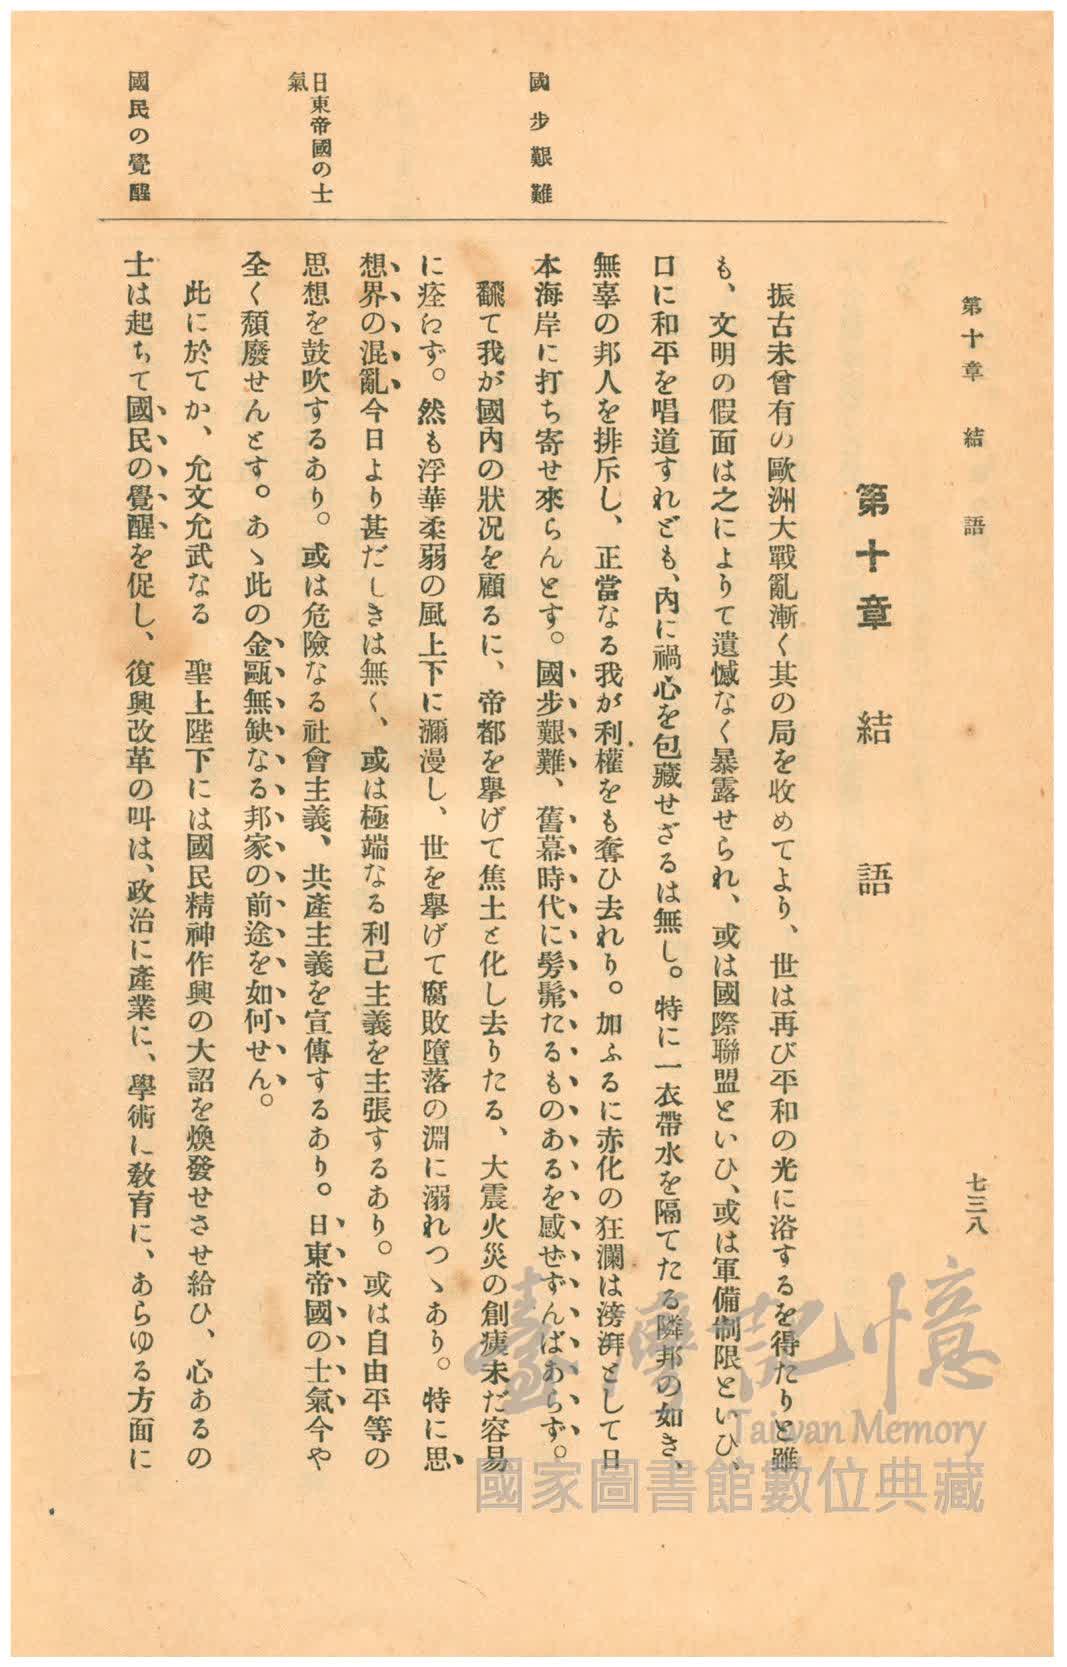 第十章　結　語
七三八
第十章　結　語
振古未曾有の歐洲大戰亂漸く其の局を收めてより、世は再び平和の光に浴するを得たりと雖
も、文明の假面は之によりて遺憾なく暴露せられ、或は國際聯盟といひ、或は軍備制限といひ、
口に和平を唱道すれども、內に禍心を包藏せざるは無し。特に一衣帶水を隔てたる隣邦の如き、
無辜の邦人を排斥し、正當なる我が利權をも奪ひ去れり。加ふるに赤化の狂瀾は滂湃として日
本海岸に打ち寄せ來らんとす。國步艱難、舊幕時代に髣髴たるものあるを感ぜずんばあらず。
飜て我が國內の狀況を顧るに、帝都を擧げて焦土と化し去りたる、大震火災の創痍未だ容易
に痊わず。然も浮華柔弱の風上下に瀰漫し、世を擧げて腐敗墮落の淵に溺れつゝあり。特に思
想界の混亂今日より甚だしきは無く、或は極端なる利己主義を主張するあり。或は自由平等の
思想を鼓吹するあり。或は危險なる社會主義、共產主義を宣傳するあり。日東帝國の士氣今や
全く頽廢せんとす。あゝ此の金甌無缺なる邦家の前途を如何せん。
此に於てか、允文允武なる　聖上陛下には國民精神作興の大詔を煥發せさせ給ひ、心あるの
士は起ちて國民の覺醒を促し、復興改革の叫は、政治に產業に、學術に敎育に、あらゆる方面に
國步艱難
日東帝國の士
氣
國民の覺醒
臺灣記憶
Taiwan Memory
國家圖書館數位典藏